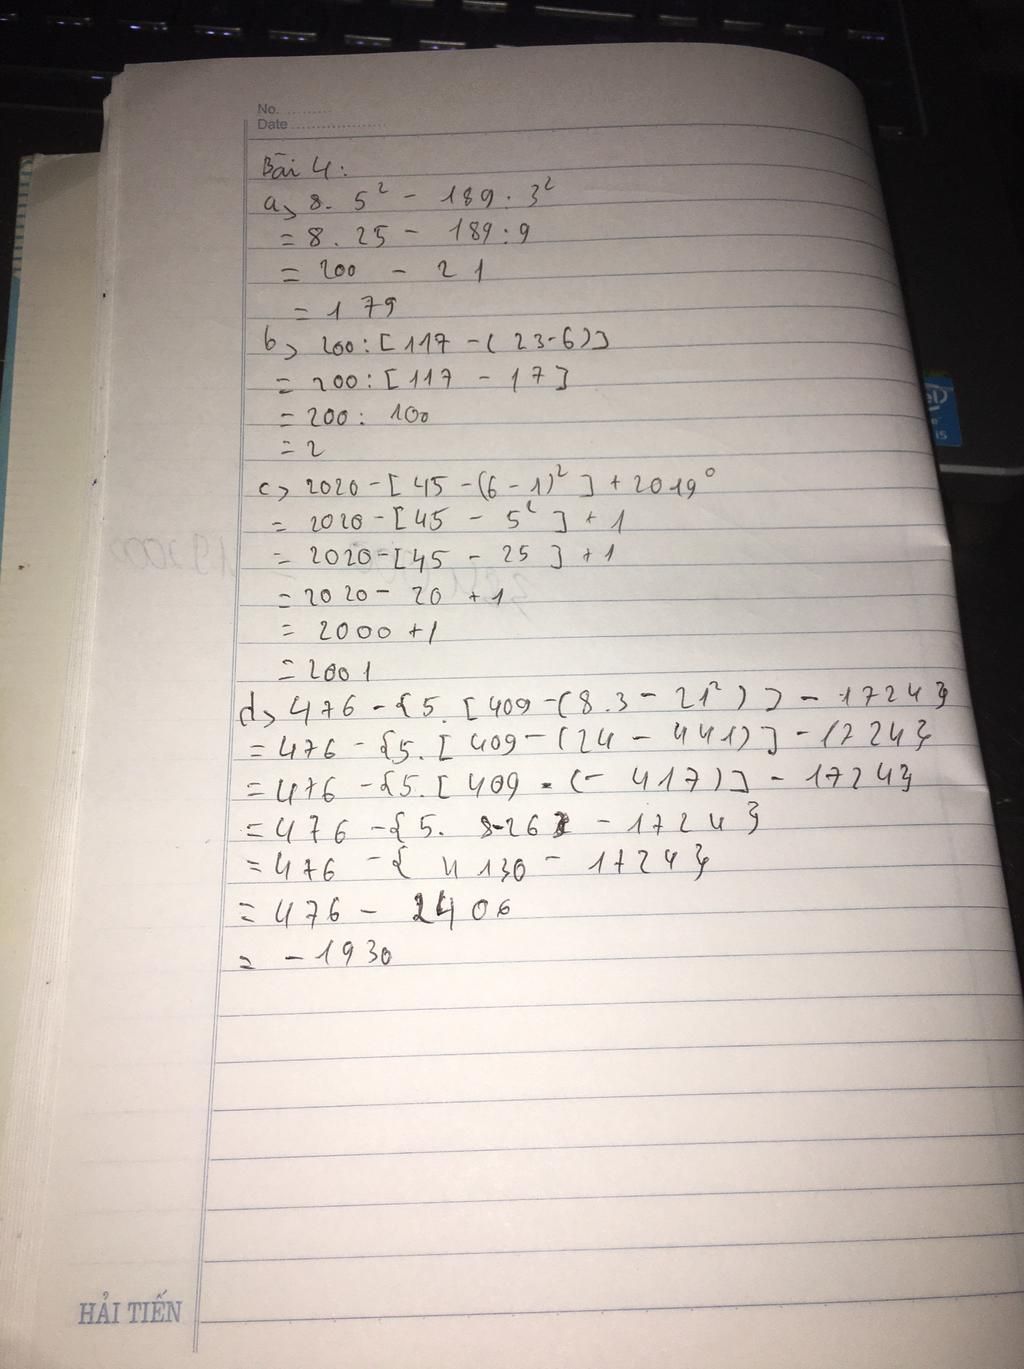 No. ............
Date ......................
Bài 4:
a> 8. 5² - 189 : 3²
= 8 . 25 - 189 : 9
= 200 - 21
= 179
b> 200 : [ 117 - ( 23 - 6 ) ]
= 200 : [ 117 - 17 ]
= 200 : 100
= 2
c> 2020 - [ 45 - (6 - 1)² ] + 2019⁰
= 2020 - [ 45 - 5² ] + 1
= 2020 - [ 45 - 25 ] + 1
= 2020 - 20 + 1
= 2000 + 1
= 2001
d> 476 - { 5. [ 409 - ( 8 . 3 - 21² ) ] - 1724 }
= 476 - { 5. [ 409 - ( 24 - 441 ) ] - 1724 }
= 476 - { 5. [ 409 - ( - 417 ) ] - 1724 }
= 476 - { 5. 826 - 1724 }
= 476 - { 4130 - 1724 }
= 476 - 2406
= - 1930
HẢI TIẾN